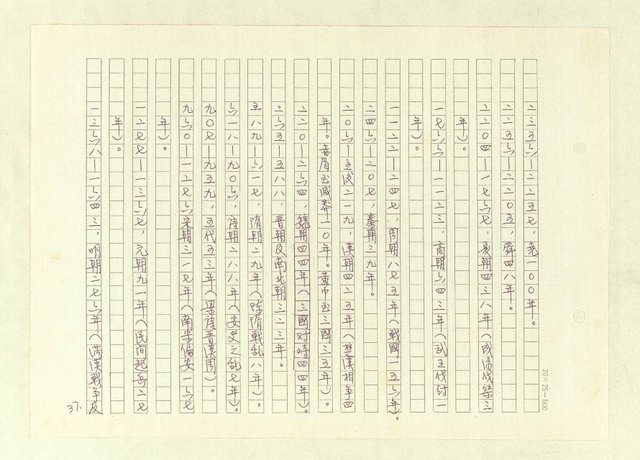 二三五六—二二五七，堯一００年。
二二五五—二二０五，舜四八年。
二二０四—一七六七，夏朝四三八年（成湯伐桀三
年）。
一七六六—一一二三，商朝六四三年（武王伐紂一
年）。
一一二二—二四七，周朝八七五年（戰國一五六年）。
二四六—二０七，秦朝三九年。
二０六—主后二一九，漢朝四二五年（楚漢相爭四
年。赤眉至滅莽一０年。黃巾至三國三五年）。
二二０—二六四，魏朝四四年（三國對峙四四年）。
二六五—五八八，晉朝及南北朝三二三年。
五八九—六一七，隋朝二九年（隋戰亂八年）。
六一八—九０六，唐朝二八八年（安史之亂七年）。
九０七—九五九，五代五三年（梁唐晉漢周）。
九六０—一二七六宋朝三一七年（南宋偏安一五六
年）。
一二七七—一三六七，元朝九一年（民間起兵二七
年）。
一三六八—一六四三，明朝二七六年（滿漢戰爭及
37.
20×25=500